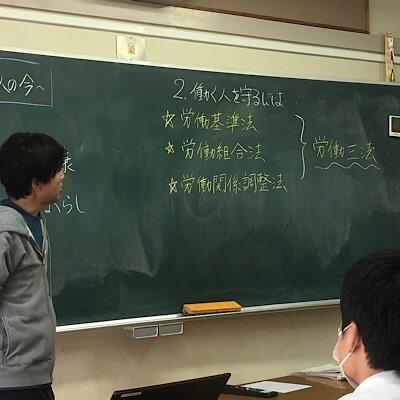 人の今へ
2、働く人を守るには…
☆労働基準法
☆労働組合法
☆労働関係調整法
労働三法
らし